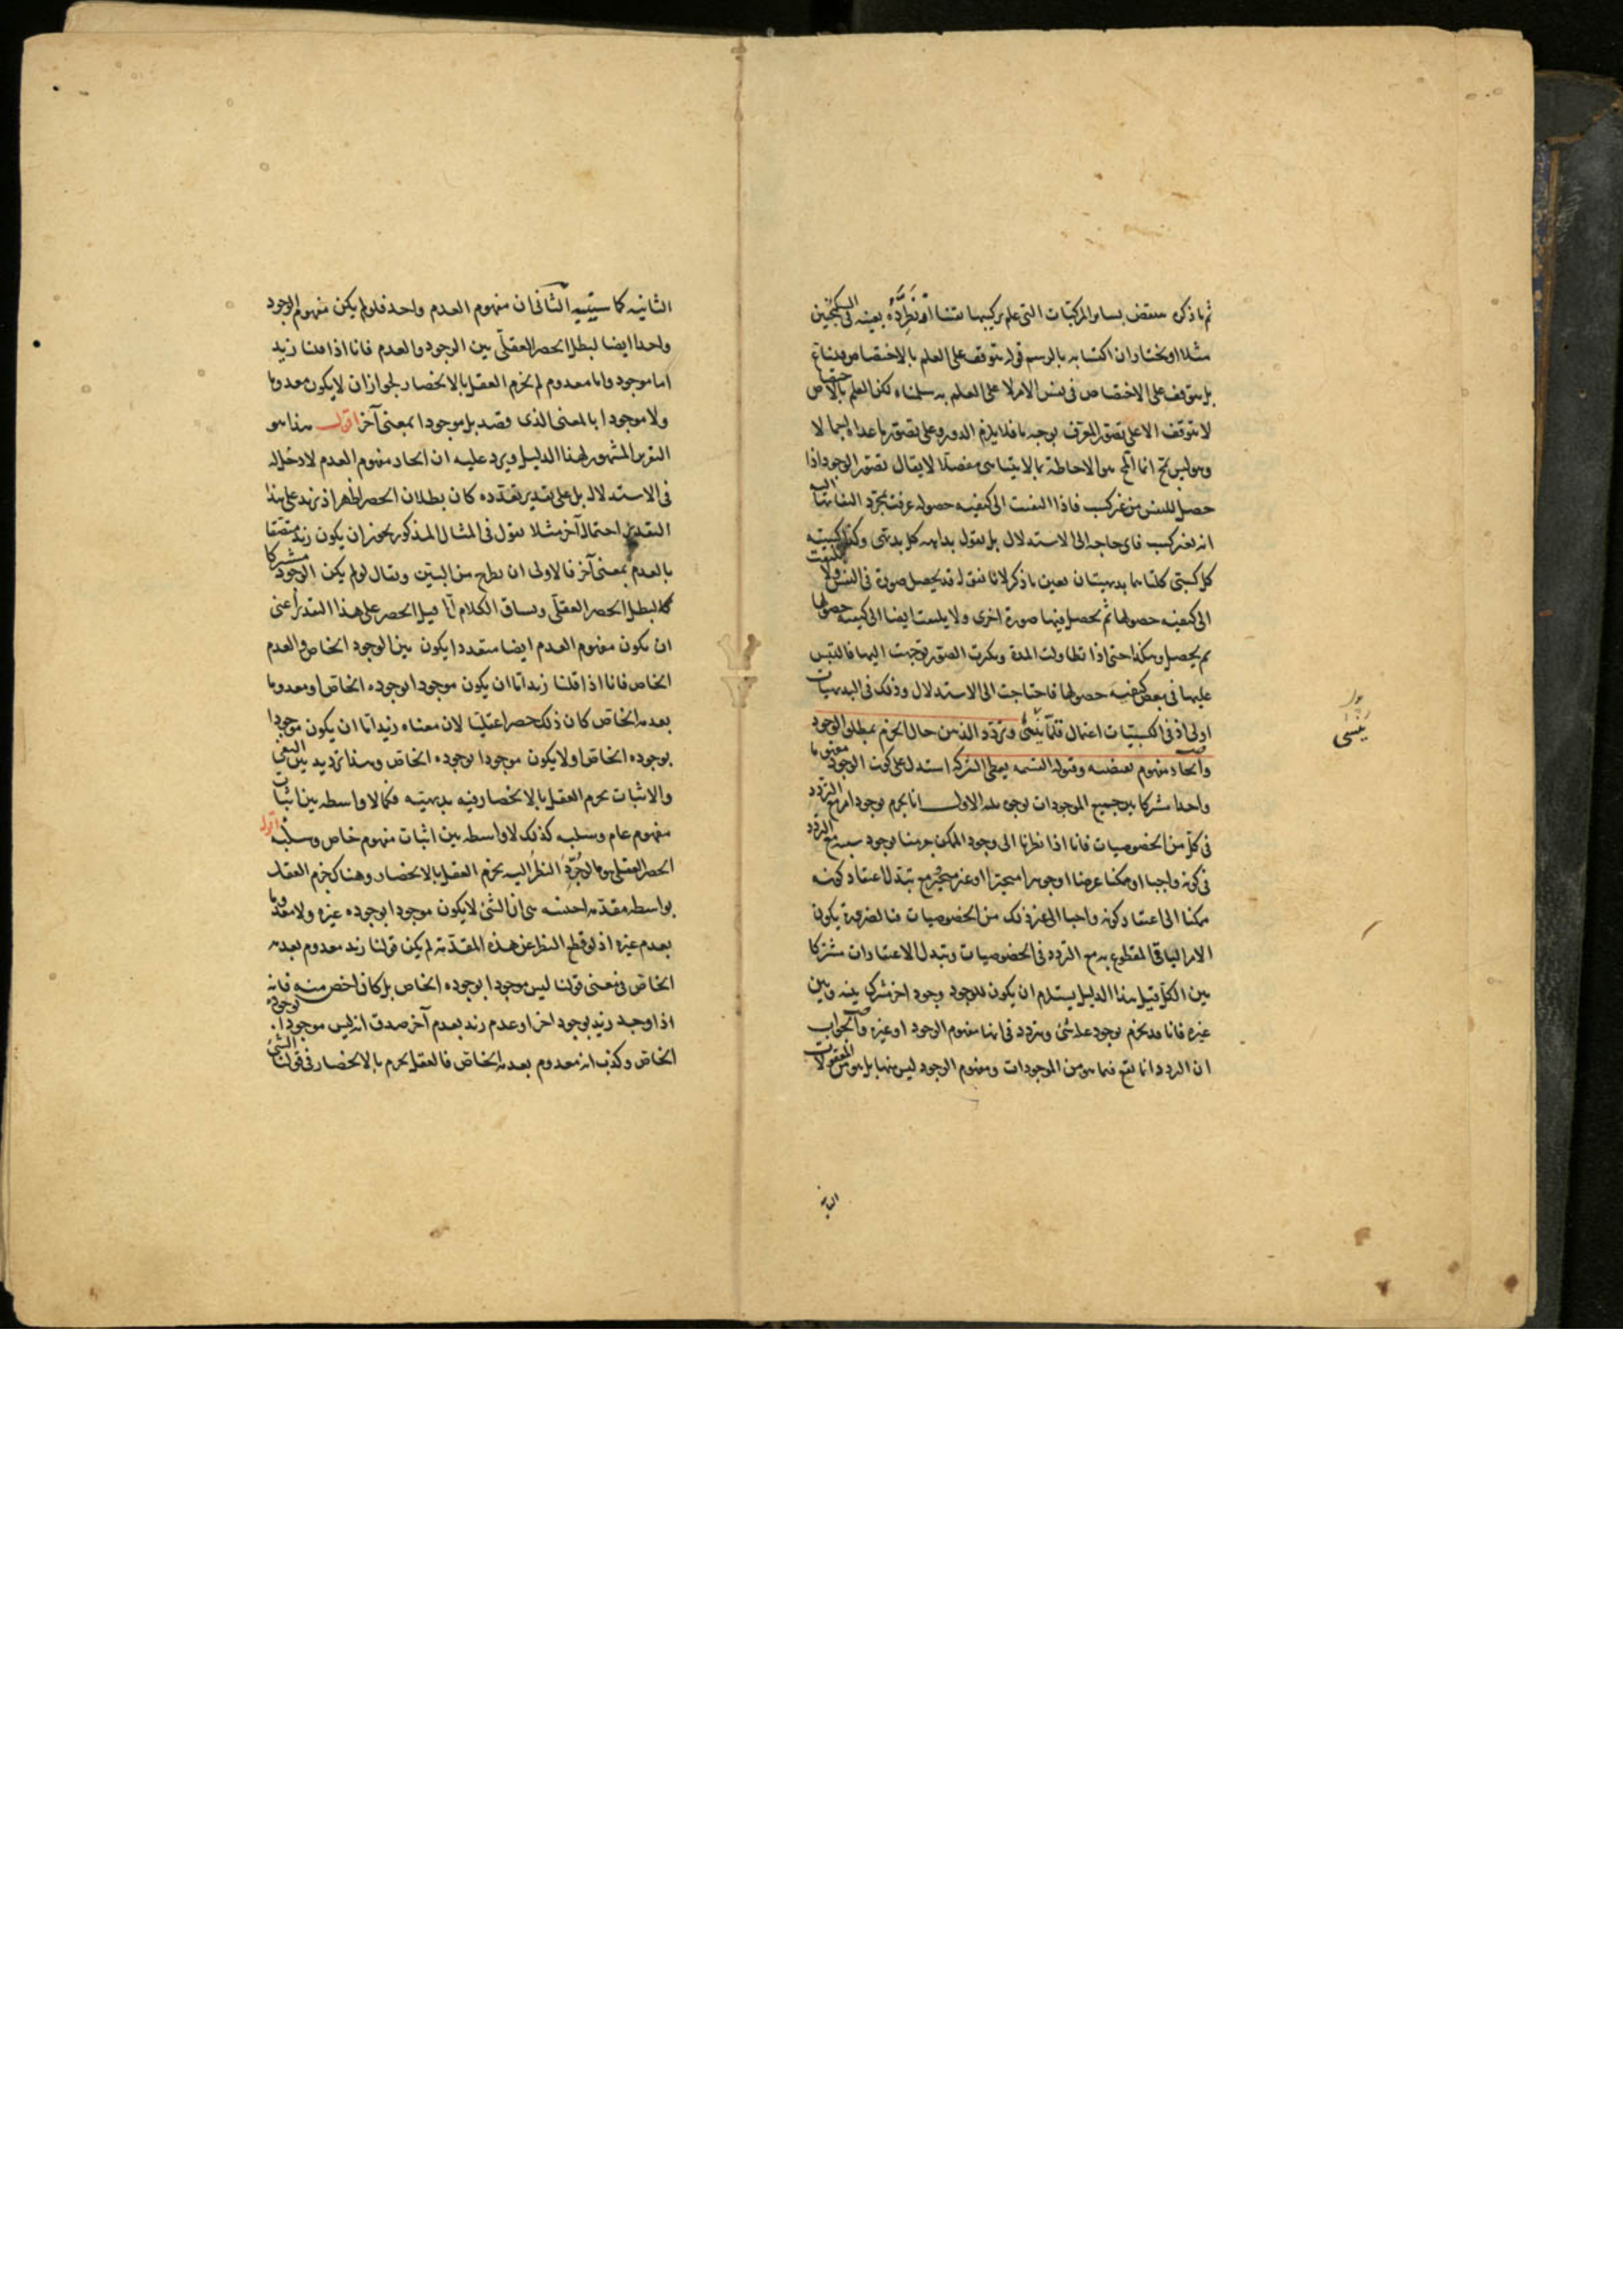 ثم ما ذكره منقض بسائر المركبات التى علم تركيبها نقضا اذ نطرده بعينه فى السكنجبين
مثلا او نختار ان اكتسابه بالرسم قوله يتوقف على العلم بالاختصاص قلنا
بل يتوقف على الاختصاص فى نفس الامر لا على العلم به سلمناه لكن العلم بالاختصاص
لا يتوقف الا على تصور المعرف بوجه ما فلا يلزم الدور وعلى تصور ما عداه اجمالا
وهو ليس بمح انما المح هو الاحاطة بما لا يتناهى مفصلا لا يقال تصور الوجود اذا
حصل للنفس من غير كسب فاذا التفتت الى كيفيه حصوله عرفت بمجرد التفاتها اليه
انه بغير كسب فاى حاجه الى الاستدلال بل نقول بداهه كل بديهى وكذا كسبيته
كل كسبى كلتاهما بديهيتان بعين ما ذكر لانا نقول قد يحصل صورة فى النفس ولا تلتفت
الى كيفيه حصولها ثم يحصل فيها صورة اخرى ولا يلتفت ايضا الى كيفيه حصولها
ثم يحصل وهكذا حتى اذا تطاولت المدة وتكثرت الصور توجهت اليها فالتبس
عليها فى بعض كيفيه حصولها فاحتاجت الى الاستدلال وذلك فى البديهيات
اولى اذ فى الكسبيات اعمال قلما ينسى وتردد الذهن حال الجزم بمطلق الوجود
واتحاد مفهوم نقيضه وقبوله القسمه يعطى الشركه استدل على كون الوجود مفهوما
واحدا مشتركا بين جميع الموجودات بوجوه ثلثه الاول انا نجزم بوجود امر مع التردد
فى كل من الخصوصيات فانا اذا نظرنا الى وجود الممكن جزمنا بوجود سببه مع التردد
فى كونه واجبا او ممكنا عرضا او جوهرا متحيزا او غير متحيز مع تبدل اعتقاد كونه
ممكنا الى اعتقاد كونه واجبا الى غير ذلك من الخصوصيات فبالضرورة يكون
الامر الباقى المقطوع به مع التردد فى الخصوصيات وتبدل الاعتقادات مشتركا
بين الكل قيل هذا الدليل يستلزم ان يكون للوجود وجود اخر مشترك بينه وبين
غيره فانا قد نجزم بوجود علة شئ ونتردد فى انها مفهوم الوجود او غيره والجواب
ان التردد انما يقع فيما هو من الموجودات ومفهوم الوجود ليس منها بل هو من المعقولات
الثانيه
الثانيه كما ستبينه الثانى ان مفهوم العدم واحد فلو لم يكن مفهوم الوجود
واحدا ايضا لبطل الحصر العقلى بين الوجود والعدم فانا اذا قلنا زيد
اما موجود واما معدوم لم يجزم العقل بالانحصار لجواز ان لا يكون معدوما
ولا موجودا بالمعنى الذى قصد بل موجودا بمعنى آخر اقول هذا هو
التقرير المشهور لهذا الدليل ويرد عليه ان اتحاد مفهوم العدم لا دخل له
فى الاستدلال بل على تقدير تعدده كان بطلان الحصر اظهر اذ يزيد على هذا
التقدير احتمال آخر مثلا نقول فى المثال المذكور يجوز ان يكون زيد متصفا
بالعدم بمعنى آخر فالاولى ان يطرح من البين ويقال لو لم يكن الوجود مشتركا
لبطل الحصر العقلى ويساق الكلام قيل الحصر على هذا التقدير اعنى
ان يكون مفهوم العدم ايضا متعددا يكون بين الوجود الخاص والعدم
الخاص فانا اذا قلنا زيد اما ان يكون موجودا بوجوده الخاص او معدوما
بعدمه الخاص كان ذلك حصرا عقليا لان معناه زيد اما ان يكون موجودا
بوجوده الخاص او لا يكون موجودا بوجوده الخاص وهذا ترديد بين النفى
والاثبات يجزم العقل بالانحصار فيه بديهيته فكما لا واسطه بين اثبات
مفهوم عام وسلبه كذلك لا واسطه بين اثبات مفهوم خاص وسلبه اقول
الحصر العقلى هو ما لو جرد النظر اليه يجزم العقل بالانحصار وهناك جزم العقل
بواسطه مقدمه اجنبيه هى ان الشئ لا يكون موجودا بوجود غيره ولا معدوما
بعدم غيره اذ لو قطع النظر عن هذه المقدمة لم يكن قولنا زيد معدوم بعدمه
الخاص فى معنى قولنا ليس موجودا بوجوده الخاص بل كان اخص منه فانه
اذا وجد زيد بوجود اخر او عدم زيد بعدم آخر صدق انه ليس موجودا بوجوده
الخاص وكذب انه معدوم بعدمه الخاص فالعقل يجزم بالانحصار فى قولنا الشئ